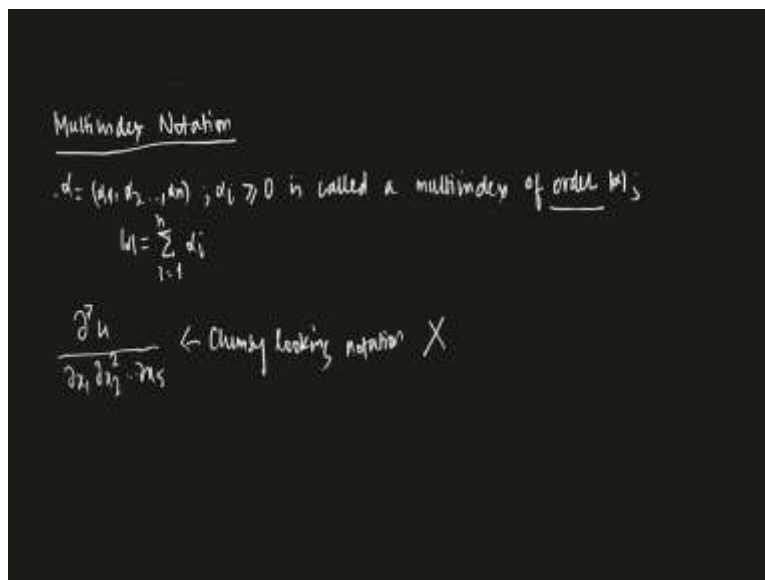 Multiindex Notation
α = (α1, α2 .., αn) ; αi ⩾ 0 is called a multiindex of order |α|;
|α| = n∑i=1 αi
∂⁷u / ∂x₁ ∂x₂² .. ∂x₅ ← Clumsy looking notation X